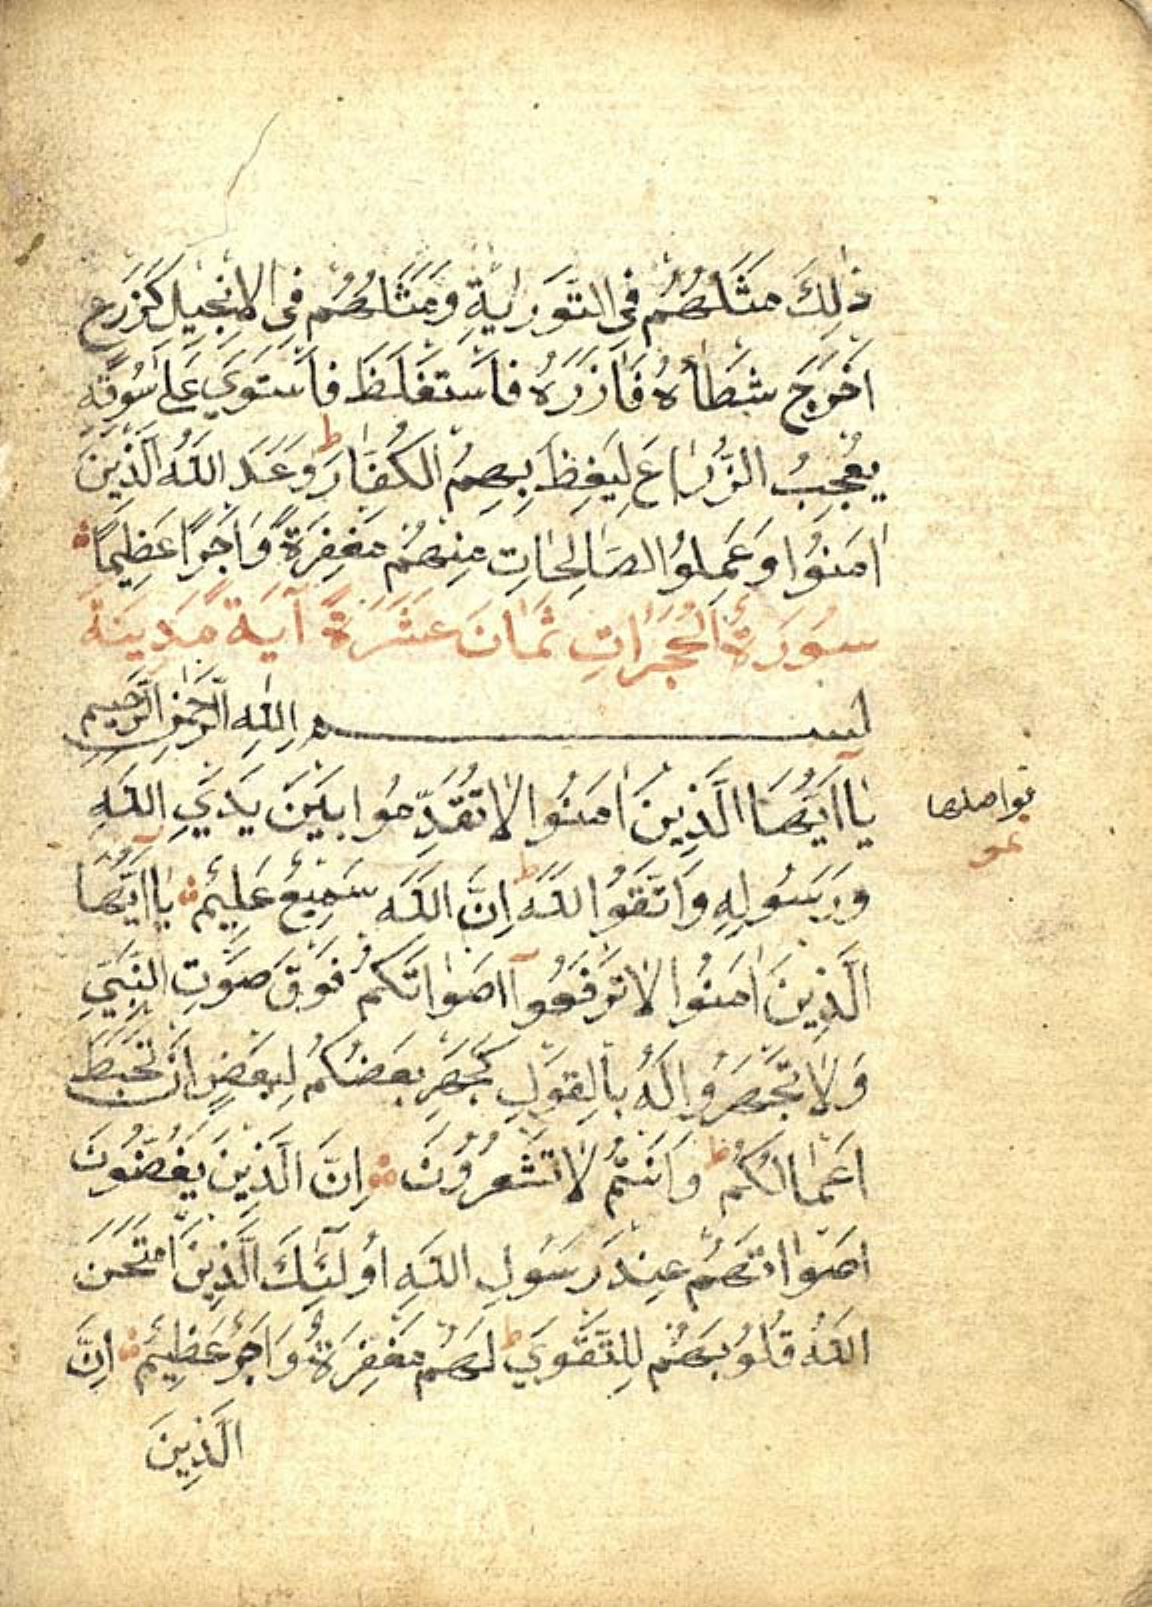 ذٰلِكَ مَثَلُهُمْ فِي التَّوْرٰيةِ وَمَثَلُهُمْ فِي الْاِنْجِيلِ كَزَرْعٍ
اَخْرَجَ شَطْأَهُ فَاٰزَرَهُ فَاسْتَغْلَظَ فَاسْتَوٰي عَلٰي سُوقِهِ
يُعْجِبُ الزُّرَّاعَ لِيَغِظَ بِهِمُ الْكُفَّارَ ط وَعَدَ اللّٰهُ الَّذِينَ
اٰمَنُوا وَعَمِلُوا الصَّالِحَاتِ مِنْهُمْ مَغْفِرَةً وَاَجْرًا عَظِيمًا
سُورَةُ الْحُجُرَاتِ ثَمَانَ عَشَرَةَ آيَةً مَدِينَةً
بِسْمِ اللّٰهِ الرَّحْمٰنِ الرَّحِيمِ
يَااَيُّهَا الَّذِينَ اٰمَنُوا لَا تُقَدِّمُوا بَيْنَ يَدَيِ اللّٰهِ
وَرَسُولِهِ وَاتَّقُوا اللّٰهَ ط اِنَّ اللّٰهَ سَمِيعٌ عَلِيمٌ يَااَيُّهَا
الَّذِينَ اٰمَنُوا لَا تَرْفَعُوا اَصْوَاتَكُمْ فَوْقَ صَوْتِ النَّبِيِّ
وَلَا تَجْهَرُوا لَهُ بِالْقَوْلِ كَجَهْرِ بَعْضِكُمْ لِبَعْضٍ اَنْ تَحْبَطَ
اَعْمَالُكُمْ ط وَاَنْتُمْ لَا تَشْعُرُونَ اِنَّ الَّذِينَ يَغُضُّونَ
اَصْوَاتَهُمْ عِنْدَ رَسُولِ اللّٰهِ اُولٰئِكَ الَّذِينَ امْتَحَنَ
اللّٰهُ قُلُوبَهُمْ لِلتَّقْوٰي ط لَهُمْ مَغْفِرَةٌ وَاَجْرٌ عَظِيمٌ اِنَّ
الَّذِينَ